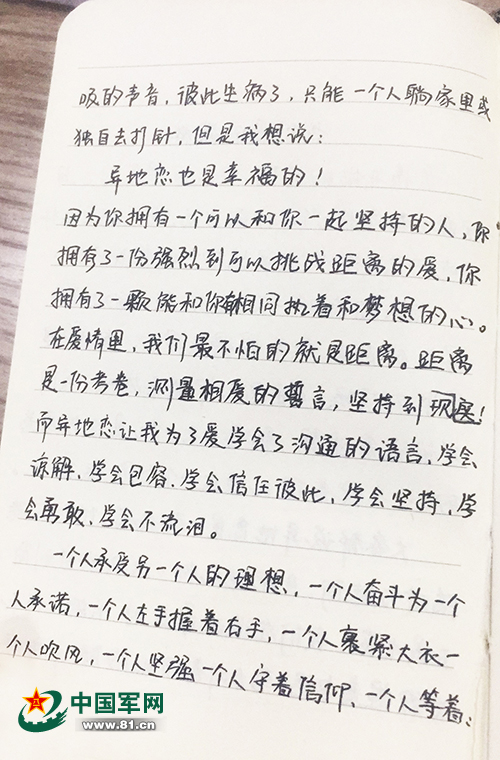 吸的声音，彼此生病了，只能一个人躺家里或
独自去打针，但是我想说：
异地恋也是幸福的！
因为你拥有一个可以和你一起坚持的人，你
拥有了一份强烈到可以挑战距离的爱，你
拥有了一颗能和你有相同执着和梦想的心。
在爱情里，我们最不怕的就是距离。距离
是一份考卷，测量相爱的誓言，坚持到现实！
而异地恋让我为了爱学会了沟通的语言，学会
谅解、学会包容、学会信任彼此，学会坚持，学
会勇敢、学会不流泪。
一个人承受另一个人的理想，一个人奋斗为一个
人承诺，一个人左手握着右手，一个人裹紧大衣一
个人吹风，一个人坚强一个人守着信仰、一个人等着；
中国军网
www.81.cn